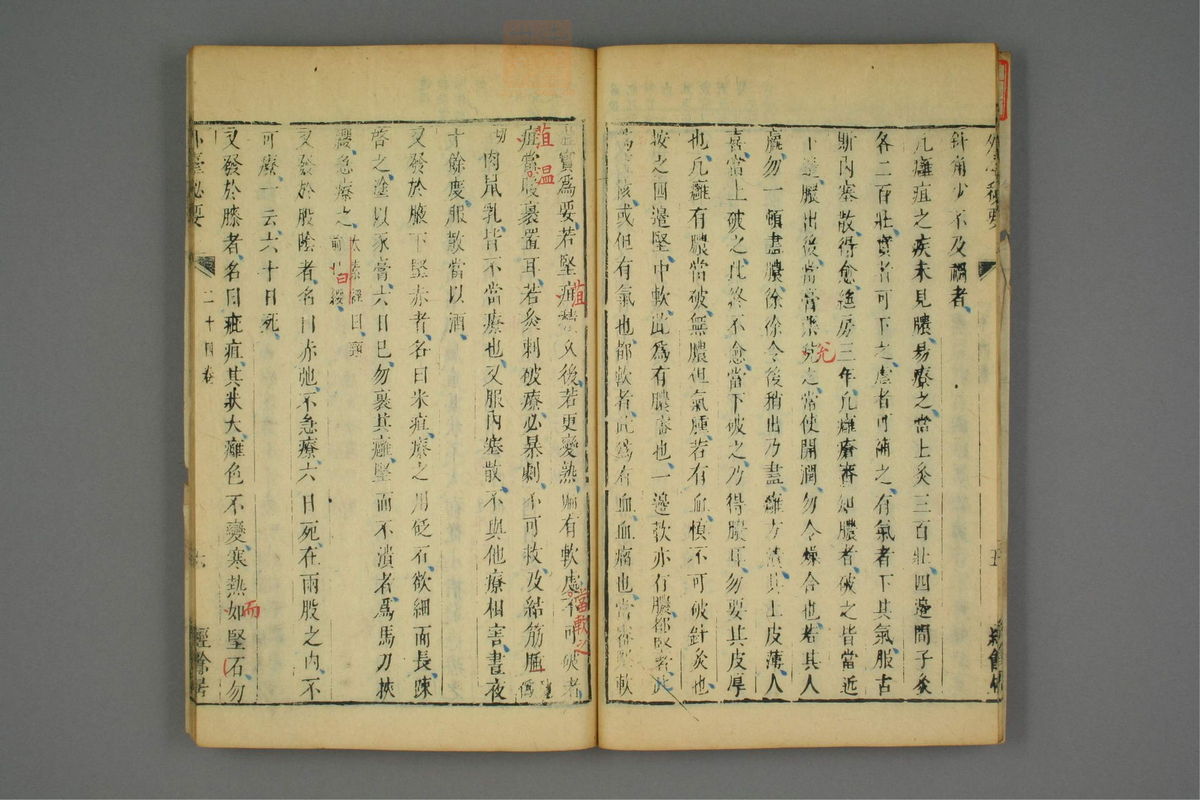 針角少不及禍者
凡癰疽之疾未見膿易療之當上灸三百壯四邊間子灸
各二百壯實者可下之虛者可補之有氣者下其氣服占
斯內塞散得愈絕房三年凡癰疽審知膿者破之皆當近
下邊膿出後當膏藥兌之常使開潤勿令燥合也若其人
羸勿一頓盡膿徐徐令後稍出乃盡癰方潰其上皮薄人
喜當上破之此終不愈當下破之乃得膿耳勿要其皮厚
也凡癰有膿當破無膿但氣腫若有血慎不可破針灸也
按之四邊堅中軟此為有膿審也一邊軟亦有膿都堅者此
為 核或但有氣也都軟者此為有血血瘤也當審 軟
虛實為要若堅疽 久後若更變熱 有軟處不可破者
疽當暖裹置耳若灸刺破療必暴劇不可救及結筋
肉鼠乳皆不當療也又服內塞散不與他療相害晝夜
十餘度服散當以酒
又發於腋下堅赤者名曰米疽療之用砭石欲細而長疎
啓之塗以豕膏六日已勿裹其癰堅而不潰者為馬刀挾
纓急療之
太素經曰頸
前曰纓
又發於股陰者名曰赤弛不急療六日死在兩股之內不
可療一云六十日死
又發於膝者名曰疵疽其狀大癰色不變寒熱如堅石勿
外臺秘要
二十四卷
六
經餘居
疽
溫
疽
當軟之
兌
曰
而